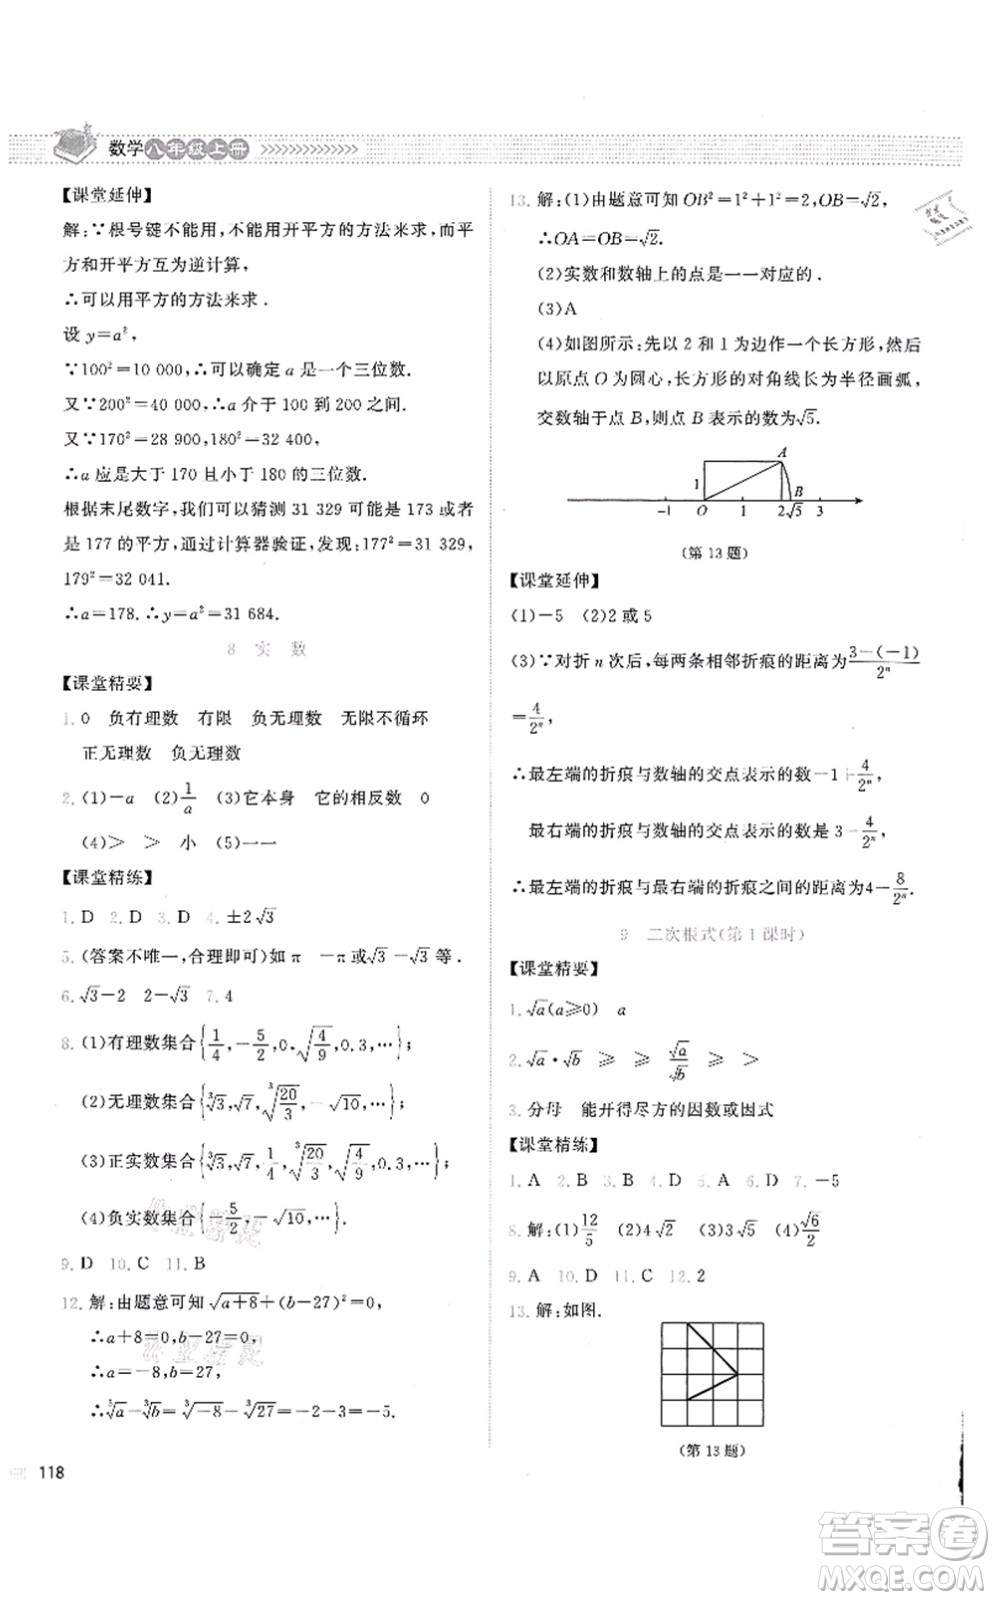 数学八年级上册
【课堂延伸】
解:∵根号键不能用,不能用开平方的方法来求,而平
方和开平方互为逆计算,
∴可以用平方的方法来求.
设 y=a²,
∵100²=10 000,∴可以确定 a 是三位数.
又∵200²=40 000,∴a 介于 100 到 200 之间.
又∵170²=28 900,180²=32 400,
∴a 应是大于 170 且小于 180 的三位数.
根据末尾数字,我们可以猜测 31 329 可能是 173 或
是 177 的平方,通过计算器验证,发现:177²=31 329,
179²=32 041.
∴a=178.∴y=a²=31 684.
8 实 数
【课堂精要】
1. 0 负有理数 有限 负无理数 无限不循环
正无理数 负无理数
2. (1)-a (2)1/a (3)它本身 它的相反数 0
(4)> > 小 (5)一一
【课堂精练】
1. D 2. D 3. D 4. ±2√3
5. (答案不唯一,合理即可)如 π -π或√3,-√3等.
6. √3-2 2-√3 7. 4
8. (1)有理数集合{1/4,-5/2,0.√(4/9),0.3,…};
(2)无理数集合{∛3,√7,∛(20/3),-√10,…};
(3)正实数集合{∛3,√7,1/4,∛(20/3),√(4/9),0.3,…};
(4)负实数集合{-5/2,-√10,…}.
9. D 10. C 11. B
12. 解:由题意可知√(a+8)+(b-27)²=0,
∴a+8=0,b-27=0,
∴a=-8,b=27,
∴∛a-∛b=∛-8-∛27=-2-3=-5.
118
13. 解:(1)由题意可知 OB²=1²+1²=2,OB=√2,
∴OA=OB=√2.
(2)实数和数轴上的点是一一对应的.
(3)A
(4)如图所示:先以 2 和 1 为边作一个长方形,然后
以原点 O 为圆心,长方形的对角线长为半径画弧,
交数轴于点 B,则点 B 表示的数为√5.
A
1
B
-1 O 1 2√5 3
(第 13 题)
【课堂延伸】
(1)-5 (2)2 或 5
(3)∵对折 n 次后,每两条相邻折痕的距离为(3-(-1))/2ⁿ
=4/2ⁿ,
∴最左端的折痕与数轴的交点表示的数-1+4/2ⁿ,
最右端的折痕与数轴的交点表示的数是 3-4/2ⁿ,
∴最左端的折痕与最右端的折痕之间的距离为4-8/2ⁿ.
9 二次根式(第 1 课时)
【课堂精要】
1. √a(a⩾0) a
2. √a·√b ⩾ ⩾ √a/√b ⩾ >
3. 分母 能开得尽方的因数或因式
【课堂精练】
1. A 2. B 3. C 4. D 5. A 6. D 7. -5
8. 解:(1)12/5 (2)4√2 (3)3√2 (4)√6/2
9. A 10. D 11. C 12. 2
13. 解:如图.
(第 13 题)
答案卷
MXQE.COM